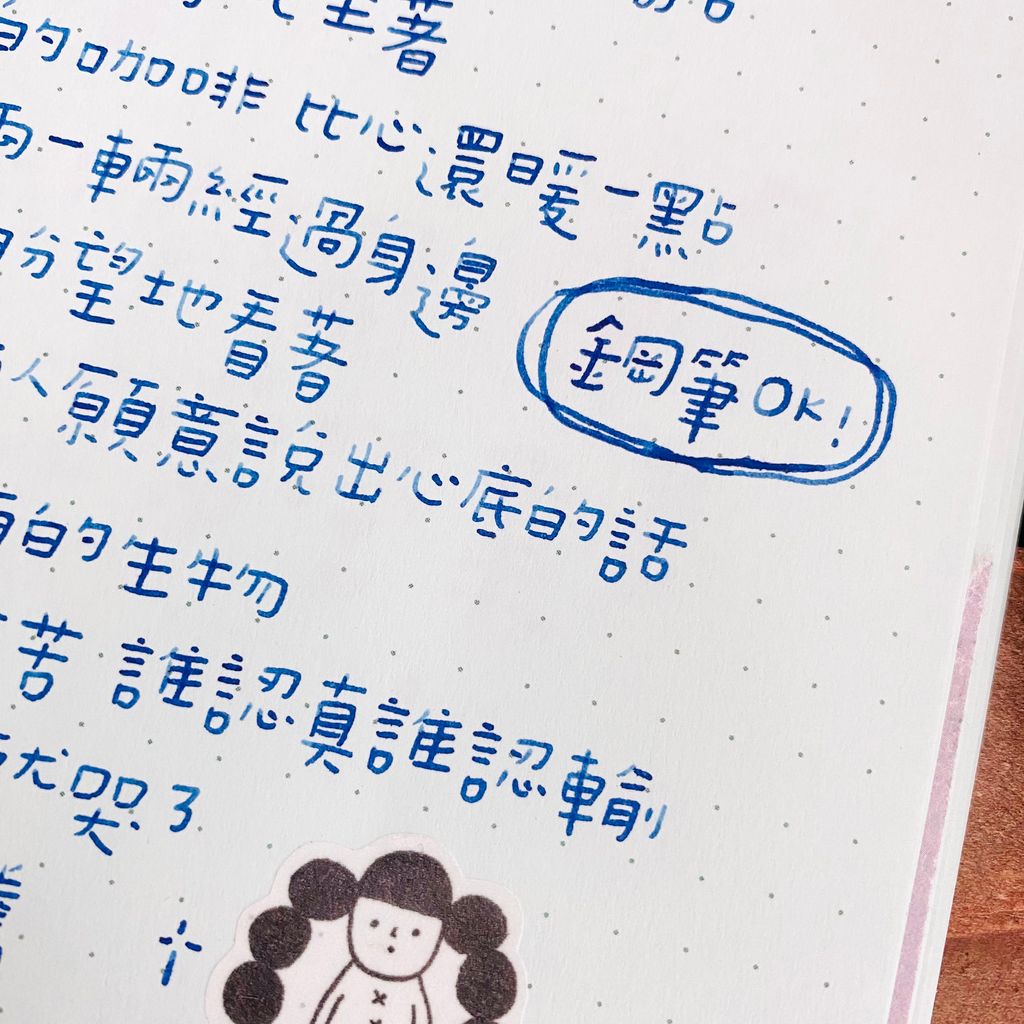 坐著
的咖啡 比心還暖一點
一輛經過身邊
望地看著
人願意說出心底的話
鋼筆OK!
的生物
苦 誰認真誰認輸
就哭了